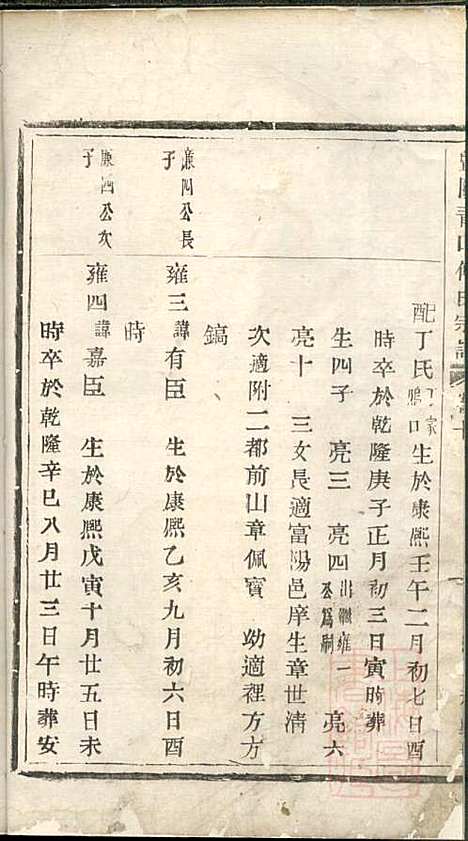 配丁氏丁家鴨口生於康熙壬午二月初七日酉
時卒於乾隆庚子正月初三日寅時葬
生四子 亮三 亮四出繼雍一公爲嗣 亮六
亮十 三女長適富陽邑庠生章世清
次適附二都前山章佩寶 幼適裡方方
鎬
廉四公長子
雍三諱有臣 生於康熙乙亥九月初六日酉
時
廉四公次子
雍四諱嘉臣 生於康熙戊寅十月廿五日未
時卒於乾隆辛巳八月廿三日午時葬安